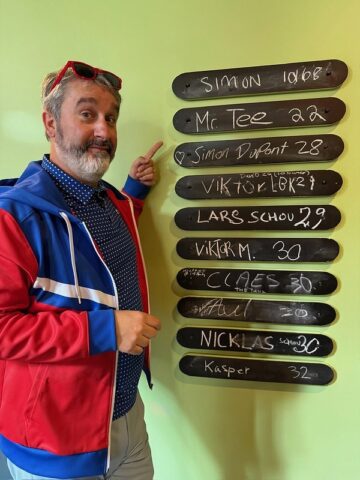 SIMON 10168
Mr. Tee 22
Simon DuPont 28
VIKTOR
LARS SCHOU 29
VIKTOR M. 30
CLAES 30
30
NICKLAS SCHOU 30
Kasper 32